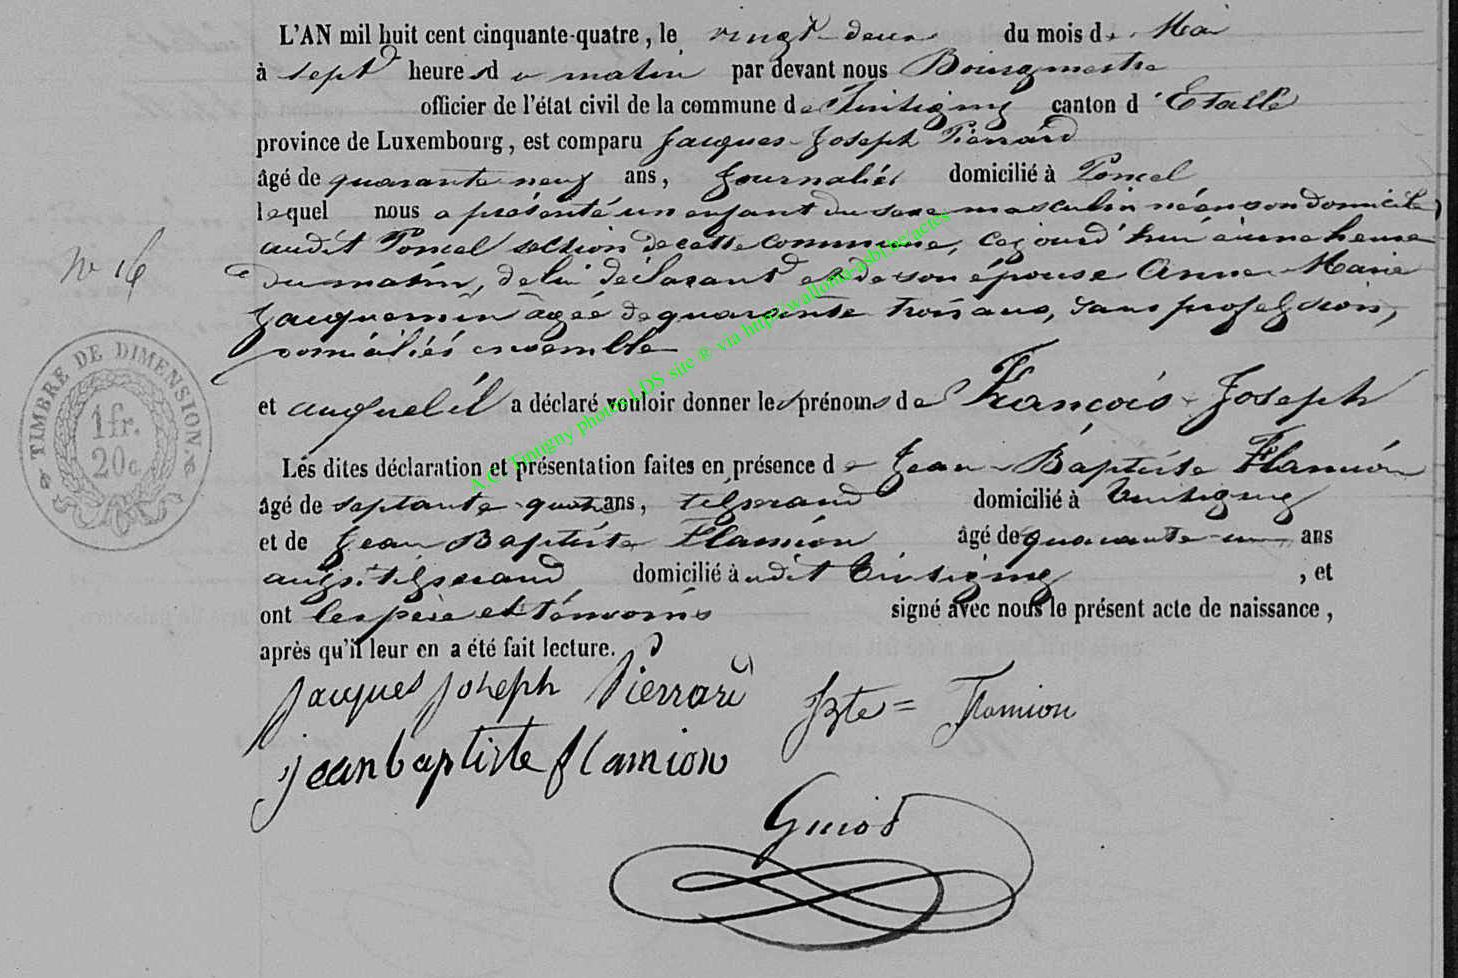 L'AN mil huit cent cinquante-quatre, le vingt-deux du mois de Mai
à sept heures du matin par devant nous Bourgmestre
officier de l'état civil de la commune de Tintigny canton d'Etalle
province de Luxembourg, est comparu Jacques-Joseph Pierrard
âgé de quarante neuf ans, Journalier domicilié à Poncel
lequel nous a présenté un enfant du sexe masculin né en son domicile
audit Poncel section de cette commune, cejourd'hui à une heure
N° 16
du matin, de lui déclarant et de son épouse Anne-Marie
Jacquemin agée de quarante trois ans, sans profession,
domiciliés ensemble
et auquel il a déclaré vouloir donner les prénoms de François-Joseph
Les dites déclaration et présentation faites en présence de Jean-Baptiste Flamion
âgé de septante-quatre ans, tisserand domicilié à Tintigny
et de Jean Baptiste Flamion âgé de quarante-un ans
aussi tisserand domicilié audit Tintigny, et
ont les père et témoins signé avec nous le présent acte de naissance,
après qu'il leur en a été fait lecture.
Jacques Joseph Pierrard
JBte = Flamion
jean baptiste flamion
Guiot
TIMBRE DE DIMENSION
1 fr.
20c
A.C. Tintigny photos LDS site ® via http://wallonia-asbl.be/actes